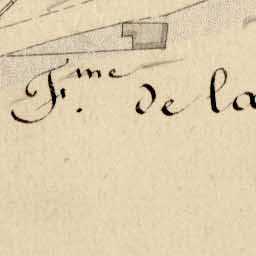 F.me de la